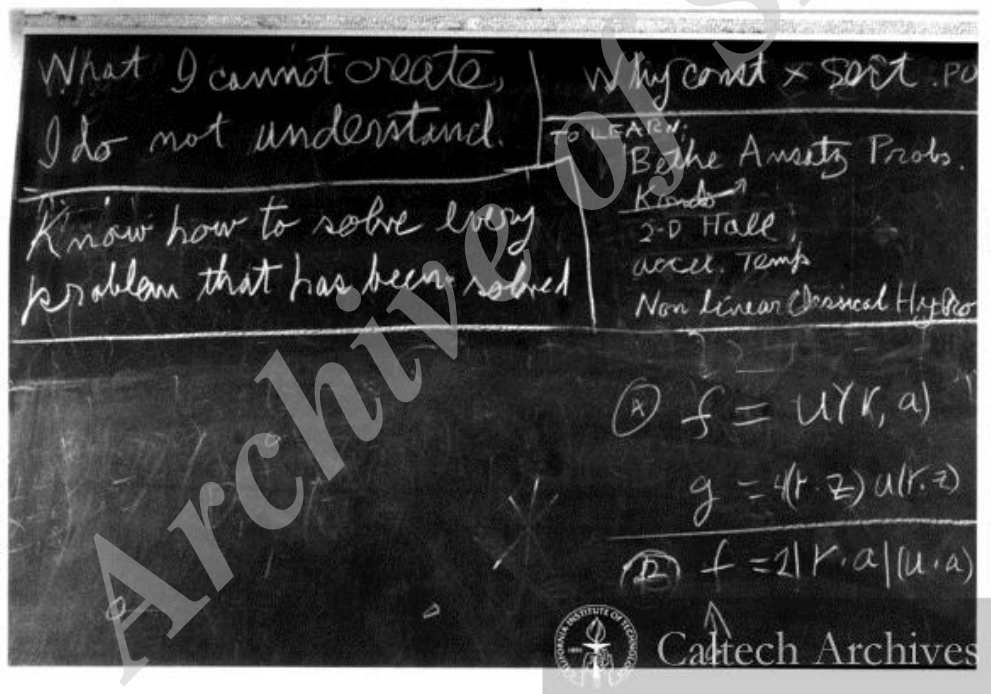 What I cannot create,
I do not understand.
Know how to solve every
problem that has been solved
Why const × sort . PO
TO LEARN:
Bethe Ansatz Probs.
Kondo
2-D Hall
accel. Temp
Non linear Classical Hydro
(A) f = u(r, a)
g = 4(r·z) u(r,z)
(B) f = 2|r·a|(u·a)
Caltech Archives
CALIFORNIA INSTITUTE OF TECHNOLOGY
1891
Archive of S